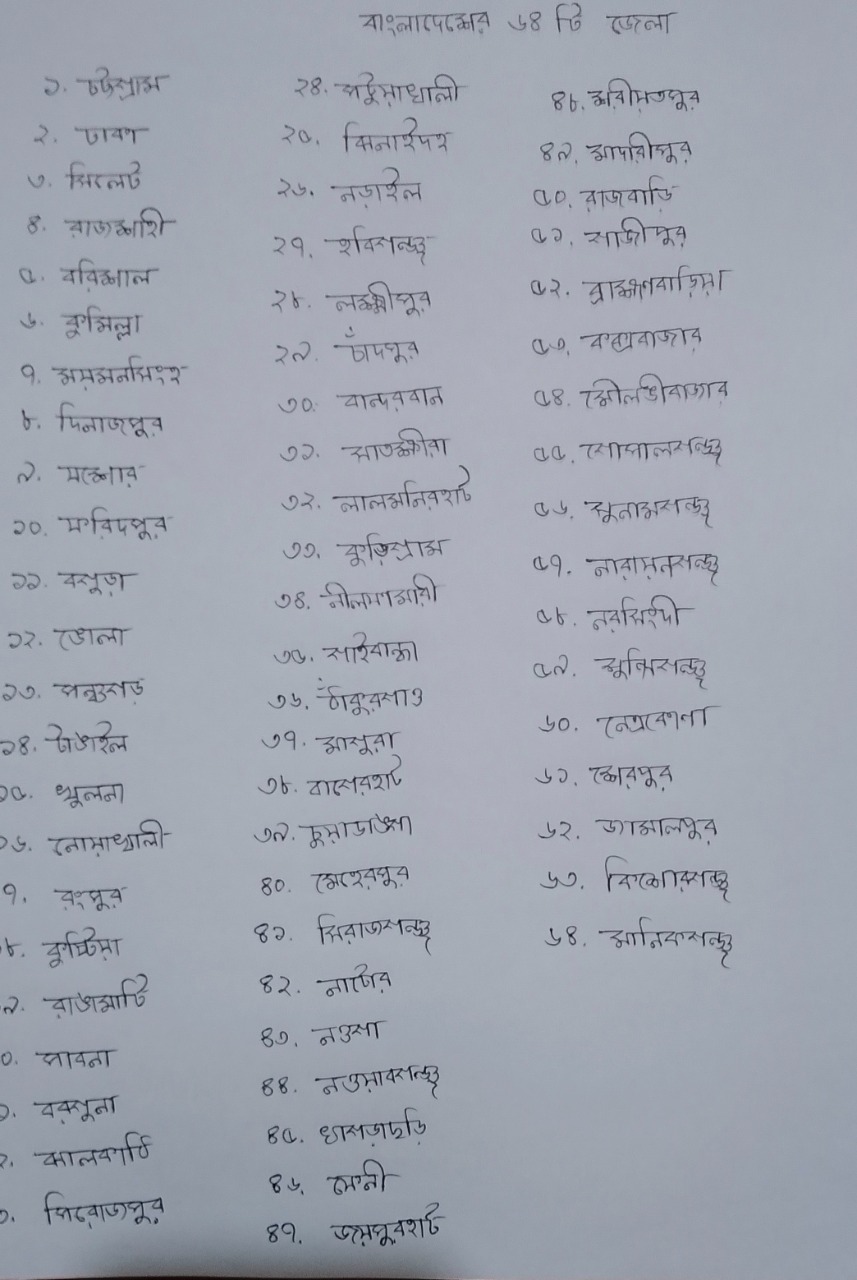 বাংলাদেশের ৬৪ টি জেলা
১. চট্টগ্রাম
২. ঢাকা
৩. সিলেট
৪. রাজশাহী
৫. বরিশাল
৬. কুমিল্লা
৭. ময়মনসিংহ
৮. দিনাজপুর
৯. যশোর
১০. ফরিদপুর
১১. বগুড়া
১২. ভোলা
১৩. পঞ্চগড়
১৪. টাঙ্গাইল
১৫. খুলনা
১৬. নোয়াখালী
৭. রংপুর
৮. কুষ্টিয়া
৯. রাঙামাটি
০. পাবনা
১. বরগুনা
২. ঝালকাঠি
৩. পিরোজপুর
২৪. পটুয়াখালী
২৫. ঝিনাইদহ
২৬. নড়াইল
২৭. হবিগঞ্জ
২৮. লক্ষ্মীপুর
২৯. চাঁদপুর
৩০. বান্দরবান
৩১. সাতক্ষীরা
৩২. লালমনিরহাট
৩৩. কুড়িগ্রাম
৩৪. নীলফামারী
৩৫. গাইবান্ধা
৩৬. ঠাঁকুরগাও
৩৭. মাগুরা
৩৮. বাগেরহাট
৩৯. চুয়াডাঙ্গা
৪০. মেহেরপুর
৪১. সিরাজগঞ্জ
৪২. নাটোর
৪৩. নওগা
৪৪. নওয়াবগঞ্জ
৪৫. খাগড়াছড়ি
৪৬. ফেনী
৪৭. জয়পুরহাট
৪৮. শরীয়তপুর
৪৯. মাদারীপুর
৫০. রাজবাড়ি
৫১. গাজীপুর
৫২. ব্রাহ্মণবাড়িয়া
৫৩. কক্সবাজার
৫৪. মৌলভীবাজার
৫৫. গোপালগঞ্জ
৫৬. সুনামগঞ্জ
৫৭. নারায়নগঞ্জ
৫৮. নরসিংদী
৫৯. মুন্সিগঞ্জ
৬০. নেত্রকোনা
৬১. শেরপুর
৬২. জামালপুর
৬৩. কিশোরগঞ্জ
৬৪. মানিকগঞ্জ